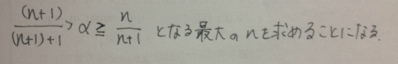 (n+1)/((n+1)+1) > α ≧ n/(n+1) となる最大のnを求めることになる.